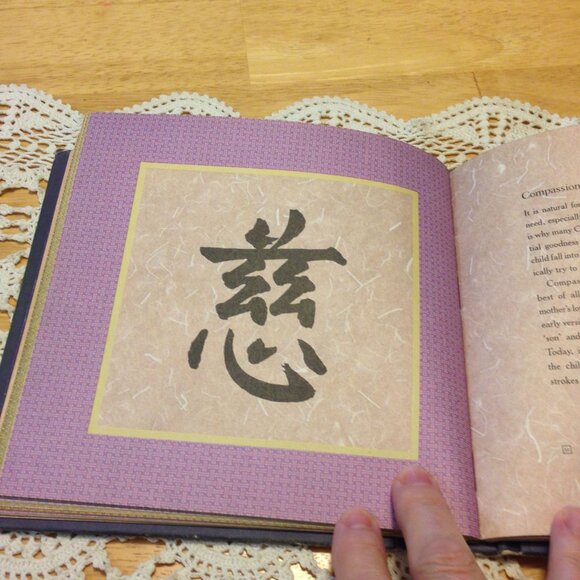 慈
Compassion
It is natural fo
need, especially
is why many C
tial goodness
child fall into
ically try to
Compas
best of al
mother's lo
early verse
'son' and
Today,
the chil
strokes